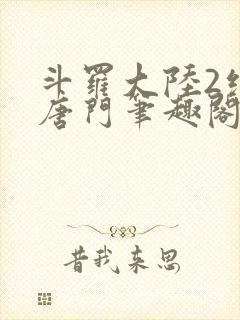 斗羅大陸2
唐門筆趣閣
昔我来思